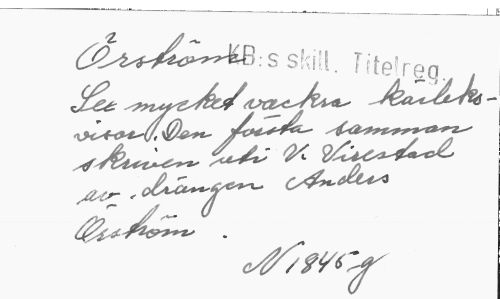 Örström
KB:s skill. Titelreg.
Sex mycket vackra kärleks-
visor. Den första samman
skriven uti V. Virestad
av drängen Anders
Örström.
N 1845 g